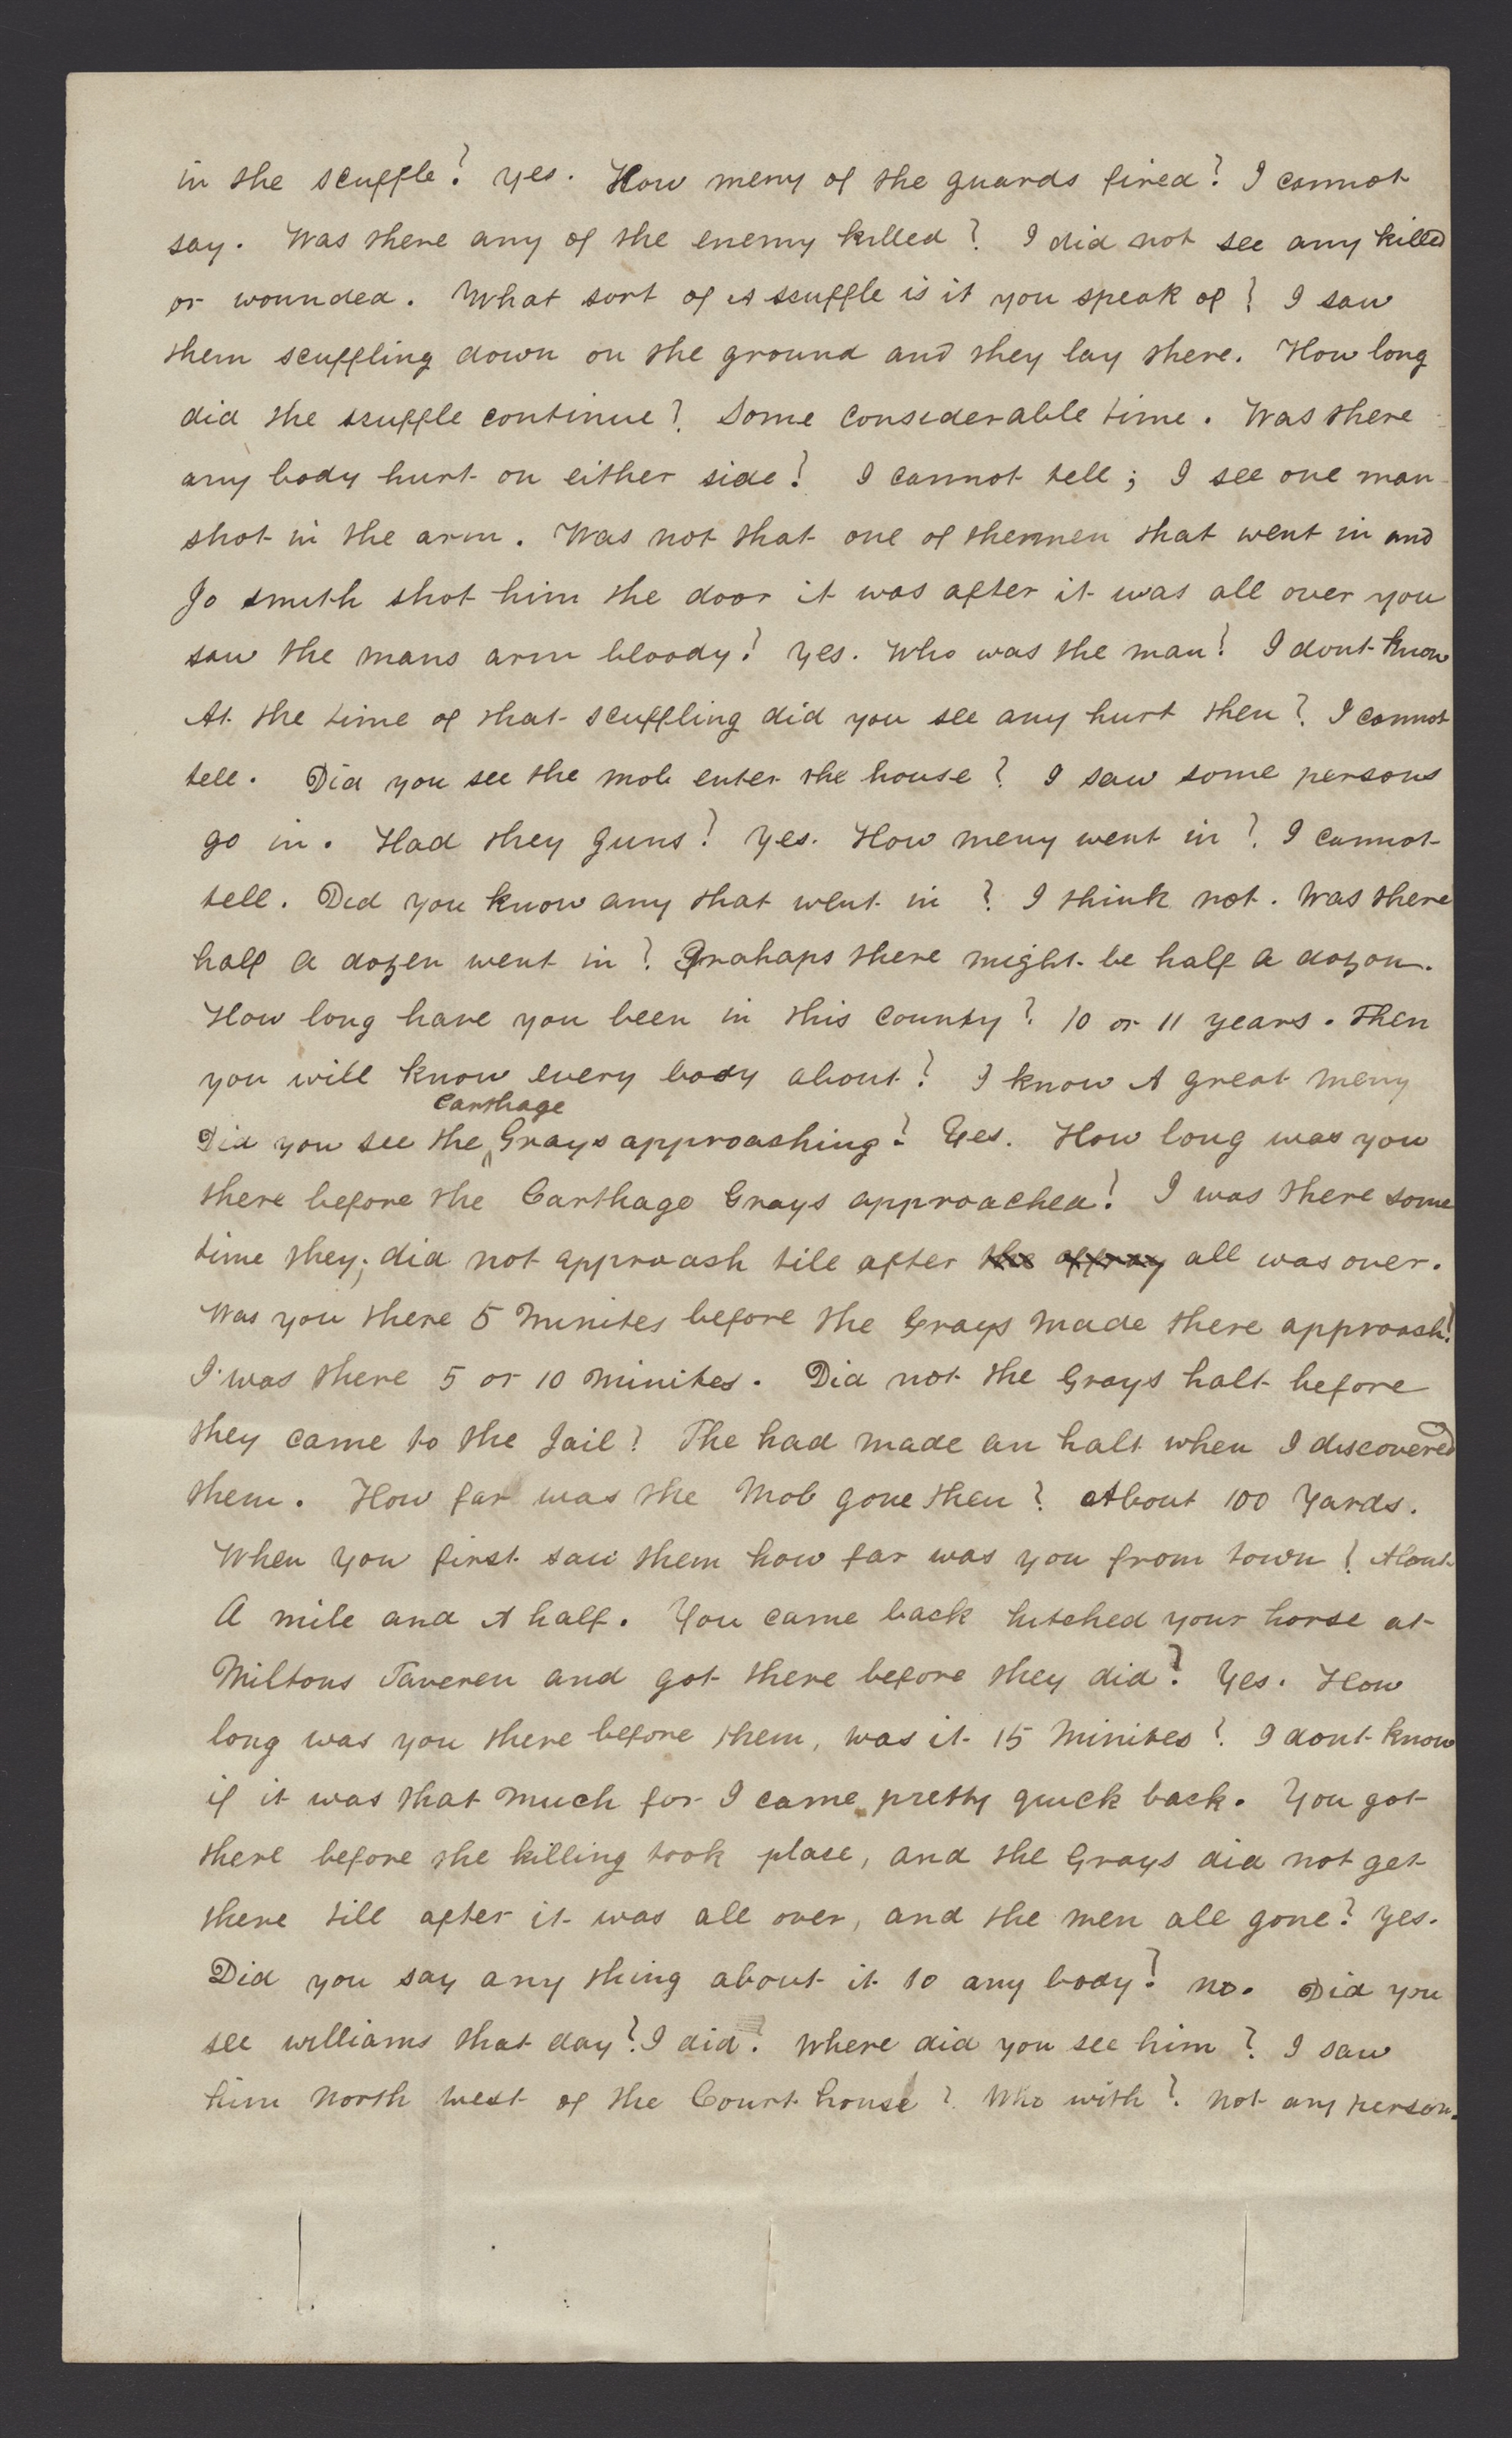 in the scuffle? yes. How meny of the guards fired? I cannot
say. Was there any of the enemy killed? I did not see any killed
or wounded. What sort of A scuffle is it you speak of? I saw
them scuffling down on the ground and they lay there. How long
did the scuffle continue? Some considerable time. Was there
any body hurt on either side? I cannot tell; I see one man
shot in the arm. Was not that one of themmen that went in and
Jo smith shot him the door it was after it was all over you
saw the mans arm bloody? yes. Who was the man? I dont know
At the time of that scuffling did you see any hurt then? I cannot
tell. Did you see the mob enter the house? I saw some persons
go in. Had they guns? Yes. How meny went in? I cannot
tell. Did you know any that went in? I think not. Was there
half a dozen went in? Prahaps there might be half a dozon.
How long have you been in this County? 10 or 11 years. Then
you will know every body about? I know A great meny
Carthage
Did you see the Grays approashing? Yes. How long was you
there before the Carthage Grays approached? I was there some
time they; did not approash till after the affray all was over.
Was you there 5 Minites before the Grays made there approash?
I was there 5 or 10 minites. Did not the Grays halt before
they came to the Jail? The had made an halt when I discovered
them. How far was the Mob gone then? About 100 Yards.
When you first saw them how far was you from town? About
A mile and A half. You came back hitched your horse at
Miltons Taveren and got there before they did? Yes. How
long was you there before them, was it 15 Minites? I dont know
if it was that much for I came pretty quick back. You got
there before the killing took place, and the Grays did not get
there till after it was all over, and the men all gone? Yes.
Did you say any thing about it to any body? no. Did you
see williams that day? I did. Where did you see him? I saw
him North West of the Court house? Who with? Not any person.